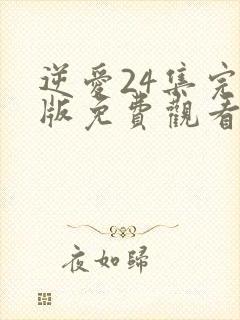 逆愛24集完
版免費觀看
夜如歸